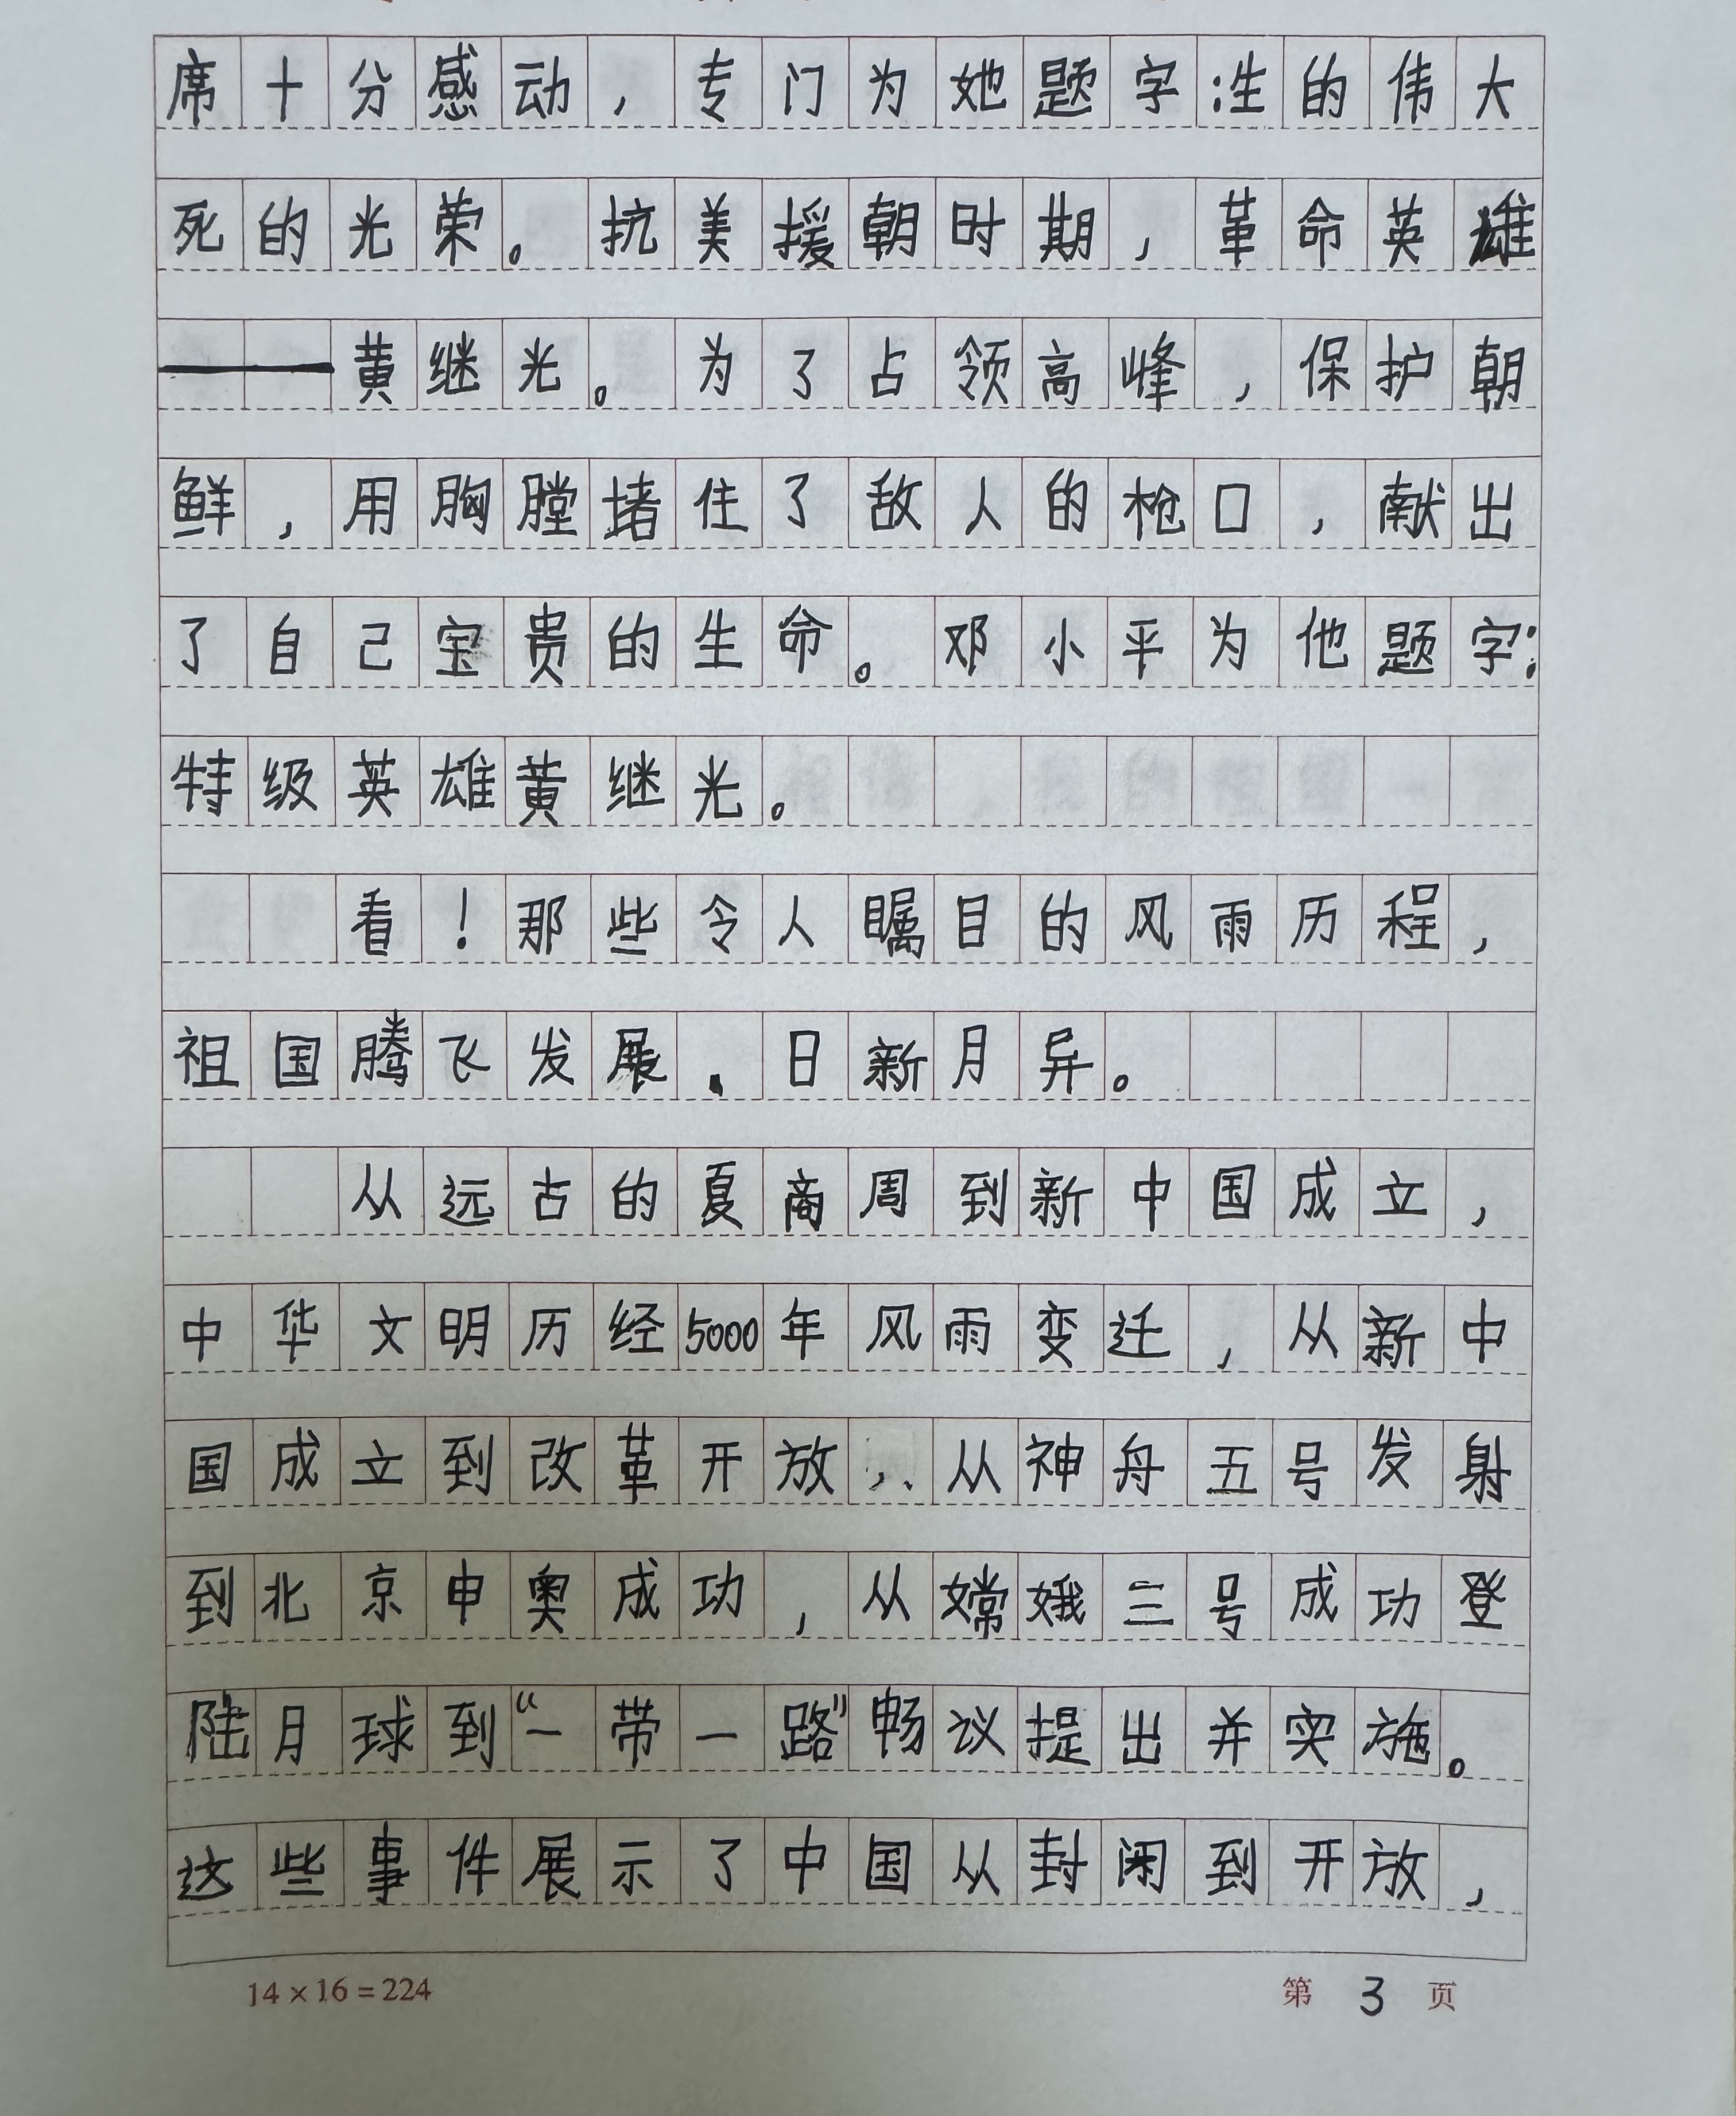 席十分感动，专门为她题字:生的伟大
死的光荣。抗美援朝时期，革命英雄
——黄继光。为了占领高峰，保护朝
鲜，用胸膛堵住了敌人的枪口，献出
了自己宝贵的生命。邓小平为他题字:
特级英雄黄继光。
看！那些令人瞩目的风雨历程，
祖国腾飞发展.日新月异。
从远古的夏商周到新中国成立，
中华文明历经5000年风雨变迁，从新中
国成立到改革开放，从神舟五号发射
到北京申奥成功，从嫦娥三号成功登
陆月球到“一带一路”畅议提出并实施。
这些事件展示了中国从封闭到开放，
14×16=224
第3页